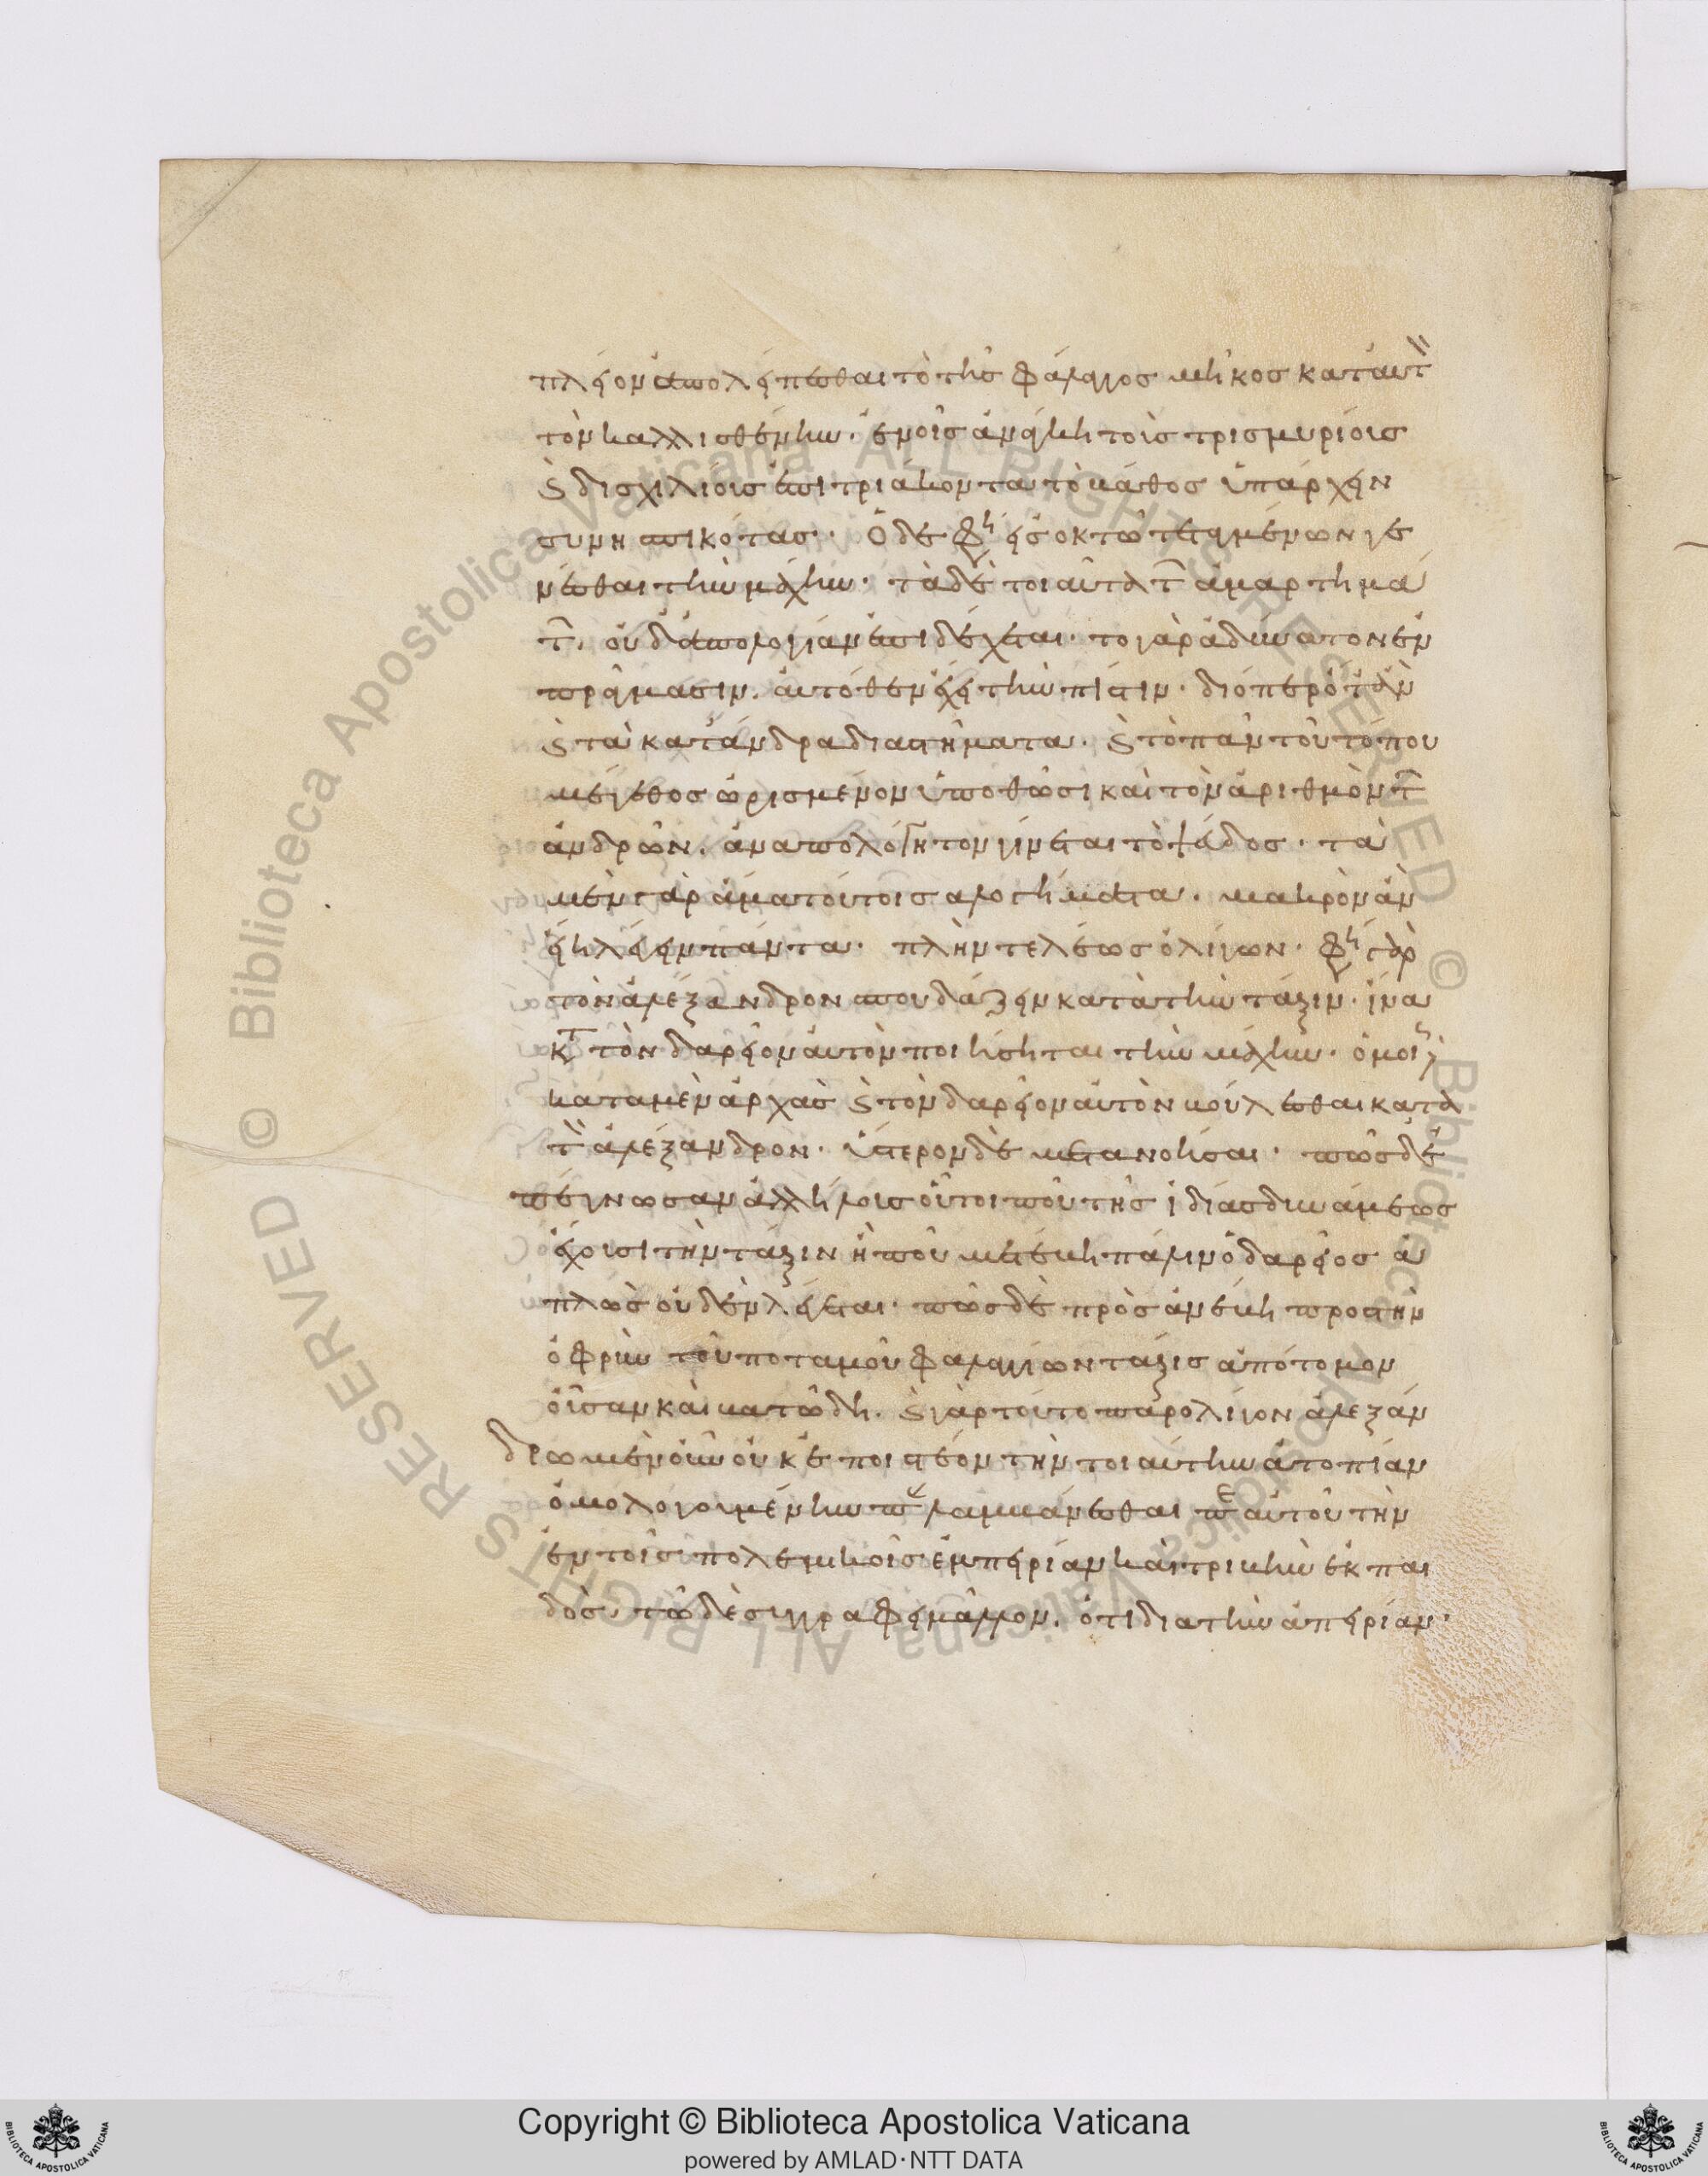 πλεῖον ἀπολείπεσθαι τὸ τῆς φάλαγγος μῆκος κατ' αὐτ
τὸν καλλισθένην. ἐν οἷς ἀνάγκη τοῖς τρισμυρίοις
δισχιλίοις ἐπὶ τριάκοντα τὸ βάθος ὑπάρχειν
συνησπικότας. ὁ δέ φη εἰς ὀκτὼ τεταγμένων γε
νέσθαι τὴν μάχην. τὰ δὲ τοιαῦτα τ ἁμαρτημά
τ. οὐδ' ἀπολογίαν ἐπιδέχεται. τὸ γὰρ ἀδύνατον ἐν
πράγμασιν. αὐτόθεν ἔχει τὴν πίστιν. διόπερ ὅταν
τὰ κατ' ἄνδρα διαστήματα. τὸ πᾶν τοῦ τόπου
μέγεθος ὡρισμένον ὑποθῶσι καὶ τὸν ἀριθμὸν τ
ἀνδρῶν. ἀναπολόγητον γίνεται τὸ ψεῦδος. τὰ
μὲν γὰρ ἅμα τούτοις ἀλογήματα. μακρὸν ἂν
εἴη λέγειν πάντα. πλὴν τελέως ὀλίγων. φη γὰρ
τὸν ἀλέξανδρον σπουδάζειν κατὰ τὴν τάξιν. ἵνα
κτ τὸν δαρεῖον αὐτὸν ποιήσηται τὴν μάχην. ὁμοί
κατὰ μὲν ἀρχὰς τὸν δαρεῖον αὐτὸν βούλεσθαι κατὰ
τ ἀλέξανδρον. ὕστερον δὲ μετανοῆσαι. πῶς δ' ἐ
πέγνωσαν ἀλλήλοις οὗτοι ποῦ τῆς ἰδίας δυνάμεως
ἔχουσι τὴν τάξιν ἢ ποῦ μετέβη πάλιν ὁ δαρεῖος ἁ
πλῶς οὐδὲν λέγεται. πῶς δὲ προσανέβη προς τὴν
ὀφρὺν τοῦ ποταμοῦ φαλαγγιῶν τάξις ἀπότομον
οὖσαν καὶ βατώδη. γὰρ τοῦτο παρ ὀλίγον ἀλεξάν
δρω μὲν οὖν οὐκ ἐποιστέον τὴν τοιαύτην ἀτοπίαν
ὁμολογουμένην π λαμβάνεσθαι π αὐτοῦ τὴν
ἐν τοῖς πολεμικοῖς ἐμπειρίαν καὶ τριβὴν ἐκ παι
δὸς. τῶ δὲ συγγραφεῖ μᾶλλον. ὅτι διὰ τὴν ἀπειρίαν.
Copyright © Biblioteca Apostolica Vaticana
powered by AMLAD·NTT DATA